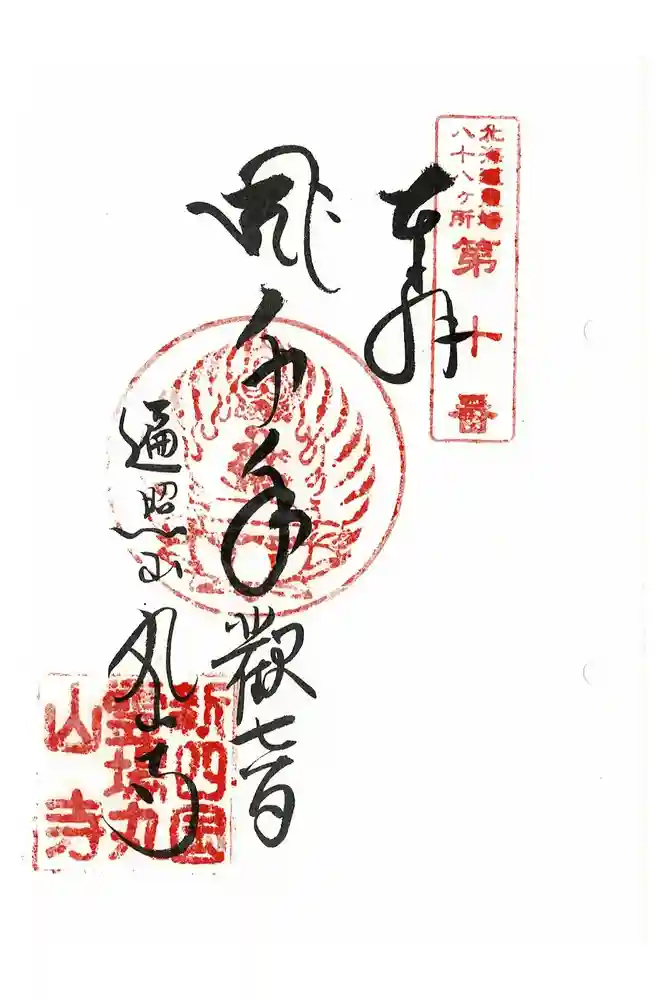 北海道霊場
八十八ヶ所
第十番
奉拝
千手観世音
遍照山
丸山寺
新四国
霊場丸
山寺